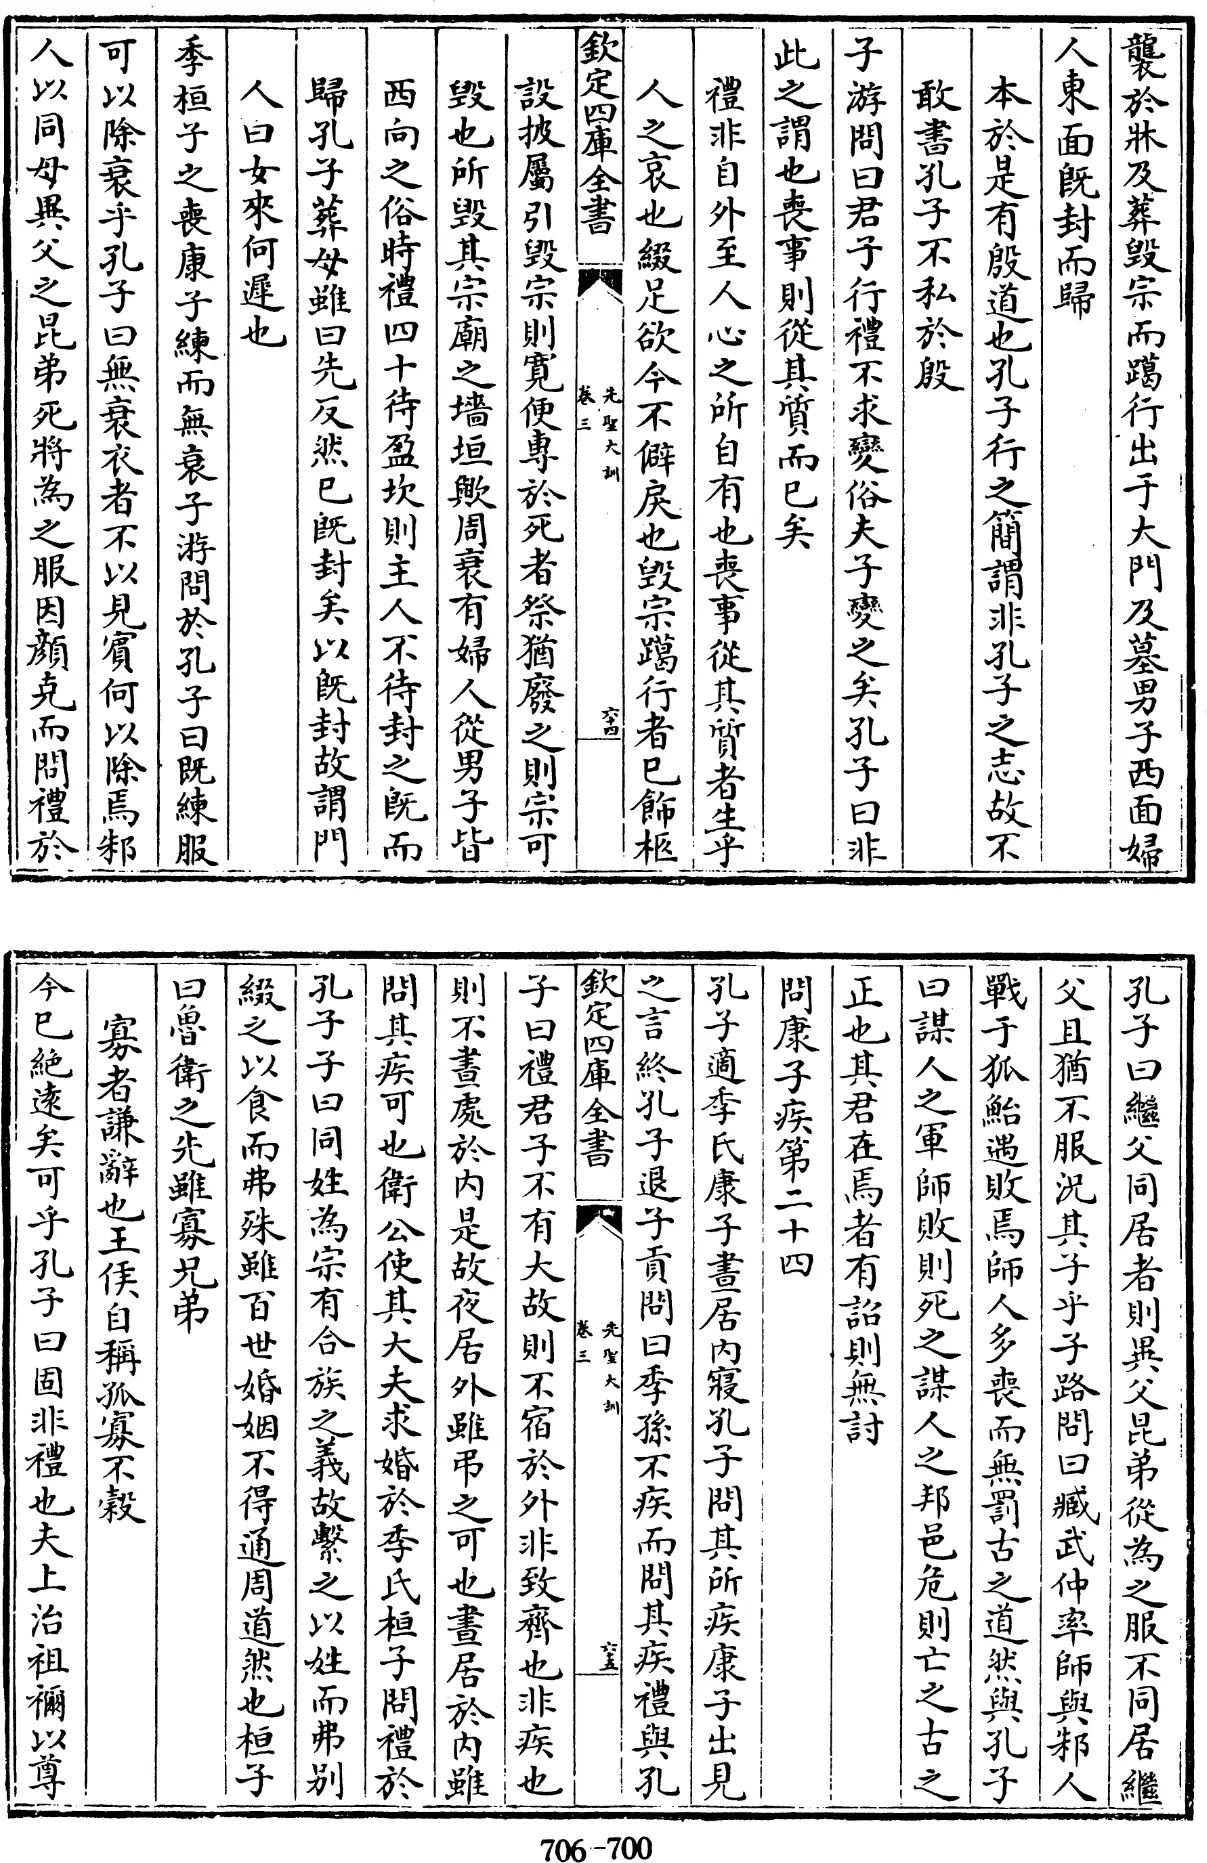 襲於牀及葬毀宗而躐行出于大門及墓男子西面婦
人東面既封而歸
本於是有殷道也孔子行之簡謂非孔子之志故不
敢書孔子不私於殷
子游問曰君子行禮不求變俗夫子變之矣孔子曰非
此之謂也喪事則從其質而已矣
禮非自外至人心之所自有也喪事從其質者生乎
人之哀也綴足欲令不僻戾也毀宗躐行者已飾柩
欽定四庫全書
先聖大訓
卷三
六十四
設披屬引毀宗則寛便專於死者祭猶廢之則宗可
毀也所毀其宗廟之墻垣歟周衰有婦人從男子皆
西向之俗時禮四十待盈坎則主人不待封之既而
歸孔子葬母雖曰先反然已既封矣以既封故謂門
人曰女來何遲也
季桓子之喪康子練而無衰子游問於孔子曰既練服
可以除衰乎孔子曰無衰衣者不以見賓何以除焉邾
人以同母異父之昆弟死將為之服因顔克而問禮於
孔子曰繼父同居者則異父昆弟從為之服不同居繼
父且猶不服況其子乎子路問曰臧武仲率師與邾人
戰于狐鮐遇敗焉師人多喪而無罰古之道然與孔子
曰謀人之軍師敗則死之謀人之邦邑危則亡之古之
正也其君在焉者有詔則無討
問康子疾第二十四
孔子適季氏康子晝居内寢孔子問其所疾康子出見
之言終孔子退子貢問曰季孫不疾而問其疾禮與孔
欽定四庫全書
先聖大訓
卷三
六十五
子曰禮君子不有大故則不宿於外非致齊也非疾也
則不晝處於内是故夜居外雖弔之可也晝居於内雖
問其疾可也衛公使其大夫求婚於季氏桓子問禮於
孔子子曰同姓為宗有合族之義故繫之以姓而弗别
綴之以食而弗殊雖百世婚姻不得通周道然也桓子
曰魯衛之先雖寡兄弟
寡者謙辭也王侯自稱孤寡不穀
今已絶遠矣可乎孔子曰固非禮也夫上治祖禰以尊
706-700